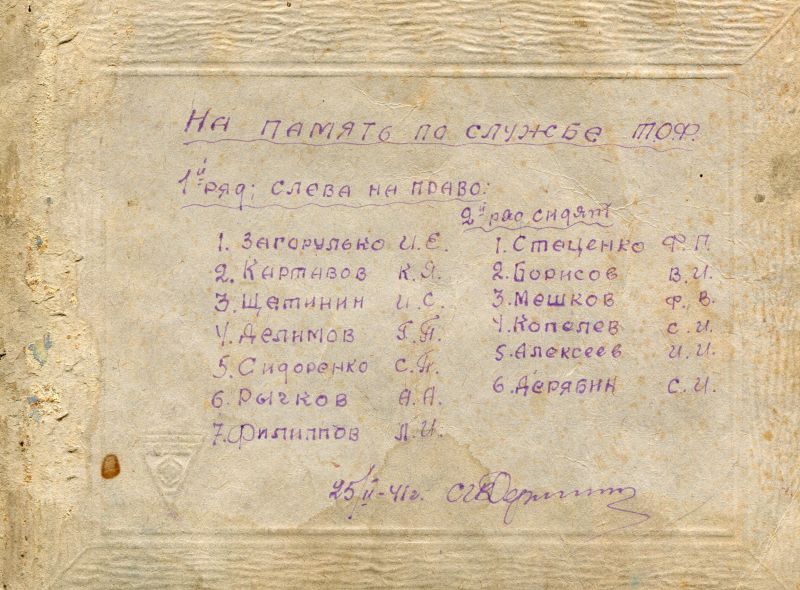 На память по службе Т.О.Ф.
1й ряд: слева на право:
2й ряд сидят
1. Загорулько И.Е.
2. Картавов К.Я.
3. Щетинин И.С.
4. Делимов Г.П.
5. Сидоренко С.П.
6. Рычков А.А.
7. Филиппов Л.И.
1. Стаценко Ф.П.
2. Борисов В.И.
3. Мешков Ф.В.
4. Копелев С.И.
5. Алексеев И.И.
6. Дерябин С.И.
25/II-41г.